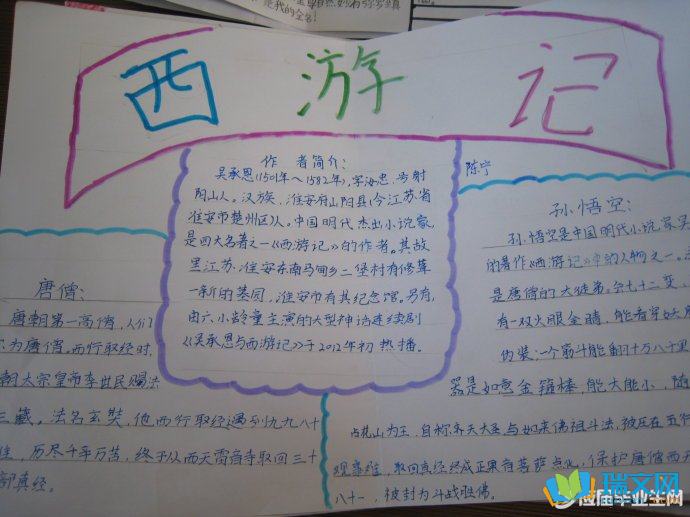 是我的全名!
西游记
作者简介:
吴承恩(1501年~1582年),字汝忠,号射
阳山人。汉族,淮安府山阳县(今江苏省
淮安市楚州区)人。中国明代杰出小说家,
是四大名著之一《西游记》的作者。其故
里江苏淮安东南马甸乡二堡村有修葺
一新的墓园,淮安市有其纪念馆。另有,
由六小龄童主演的大型神话连续剧
《吴承恩与西游记》于2012年初热播。
陈宁
唐僧:
唐朝第一高僧,人们
为唐僧。西行取经时,
朝太宗皇帝李世民赐法
三藏。法名玄奘,他西行取经遇到九九八十
难,历尽千辛万苦,终于从西天雷音寺取回三十
部真经。
孙悟空:
孙悟空是中国明代小说家吴
的著作《西游记》中的人物之一。
是唐僧的大徒弟。会七十二变,
有一双火眼金睛,能看穿妖
伪装:一个筋斗能翻十万八千里
器是如意金箍棒,能大能小,随
占花山为王,自称齐天大圣与如来佛祖斗法,被压在五行
观音菩萨点化,保护唐僧西天
取回真经终成正果
八十一,被封为斗战胜佛。
瑞文网
应届毕业生网